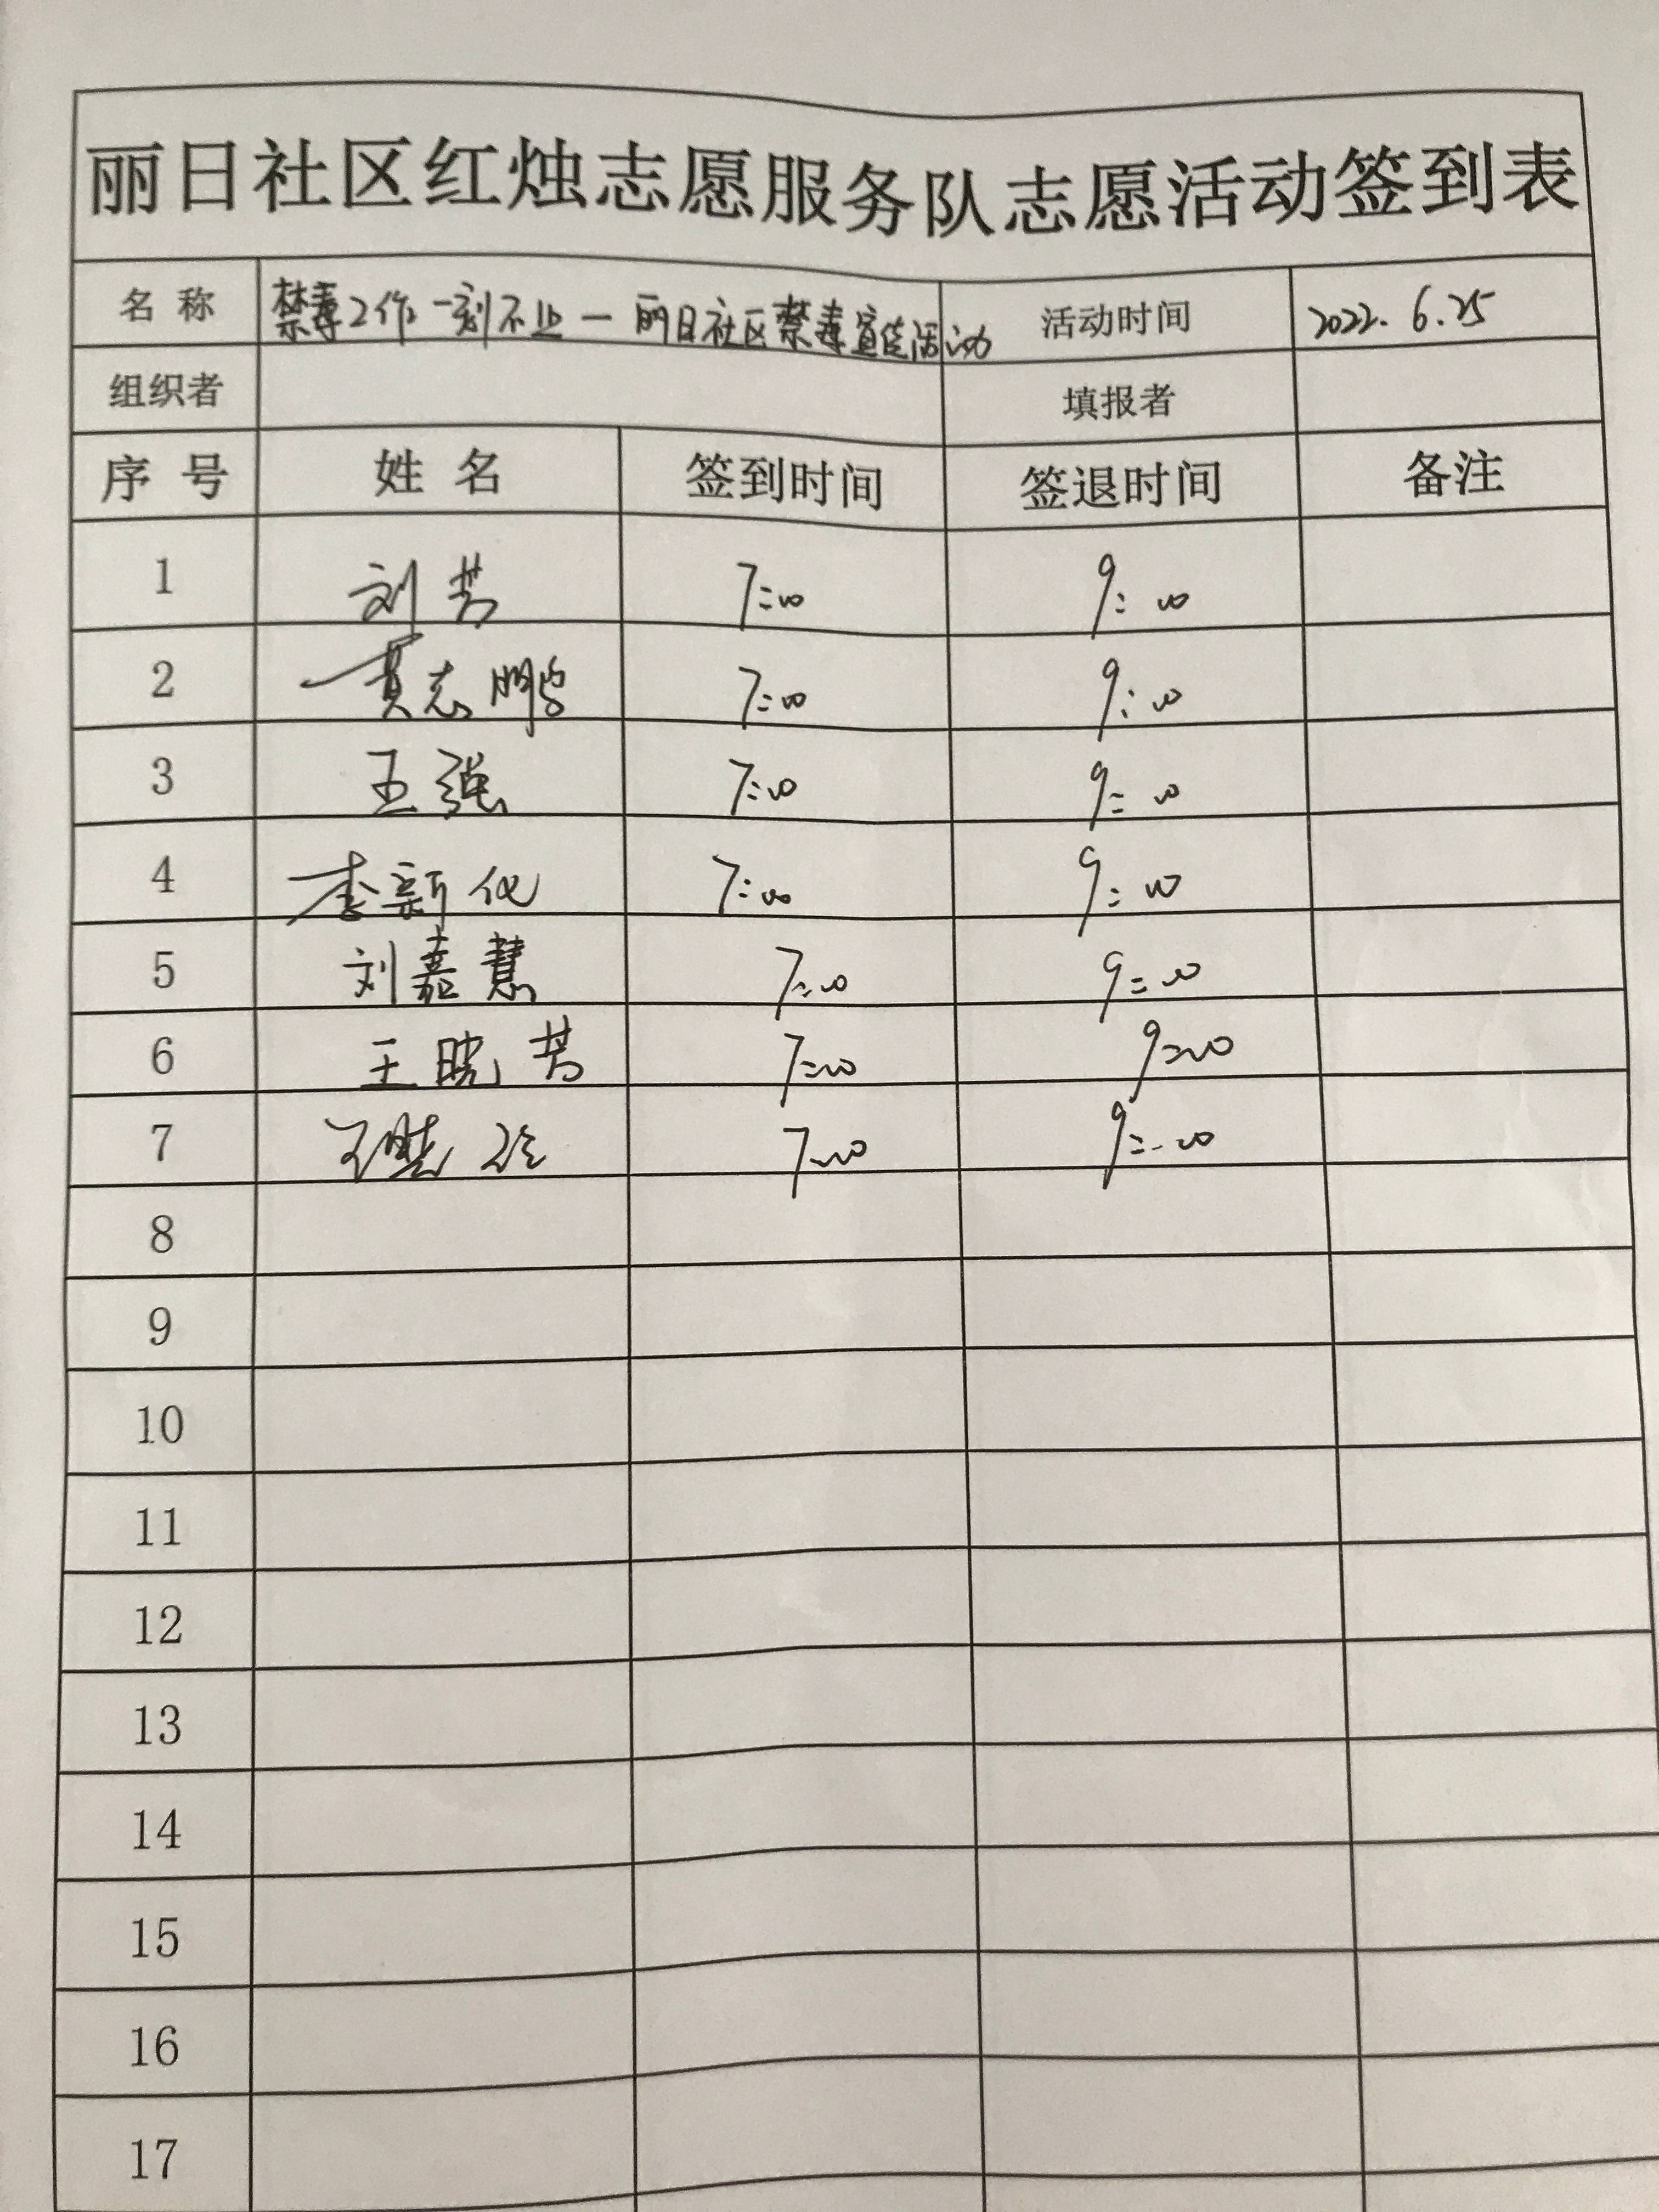 丽日社区红烛志愿服务队志愿活动签到表
名 称 禁毒工作一刻不止一丽日社区禁毒宣传活动 活动时间 2022.6.25
组织者 填报者
序 号 姓 名 签到时间 签退时间 备注
1 刘芳 7:00 9:00
2 黄志鹏 7:00 9:00
3 王强 7:00 9:00
4 李新化 7:00 9:00
5 刘嘉慧 7:00 9:00
6 王晓芳 7:00 9:00
7 7:00 9:00
8
9
10
11
12
13
14
15
16
17